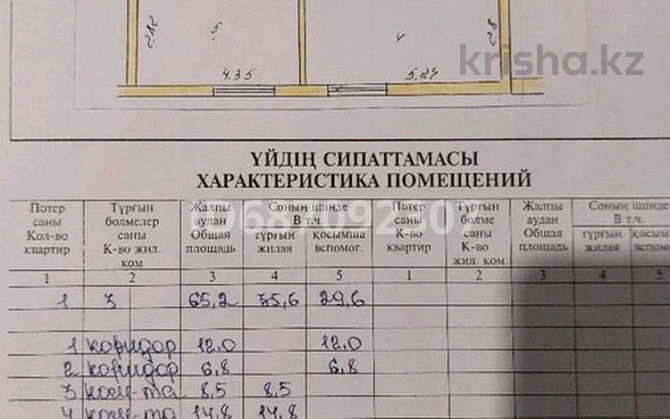 krisha.kz
2.82
5
4
2.8
4.35
5.24
ҮЙДІҢ СИПАТТАМАСЫ
ХАРАКТЕРИСТИКА ПОМЕЩЕНИЙ
Пәтер саны Кол-во квартир
Тұрғын бөлмелер саны К-во жил. ком
Жалпы аудан Общая площадь
Соның ішінде В т.ч.
тұрғын жилая
қосымша вспомог.
Пәтер саны Кол-во квартир
Тұрғын бөлме саны К-во жил. ком
Жалпы аудан Общая площадь
Соның ішінде В т.ч.
тұрғын жилая
қосымша вспомог.
1 2 3 4 5 1 2 3 4 5
1 3 65,2 35,6 29,6
1 коридор 12,0 12,0
2 коридор 6,8 6,8
3 комн-та 8,5 8,5
4 комн-та 14,8 14,8